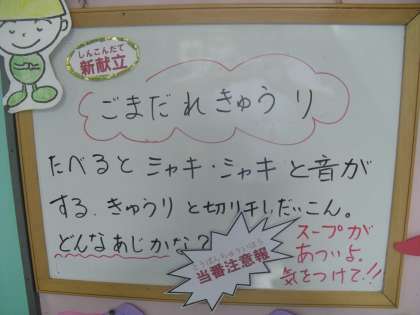 しんこんだて
新献立
ごまだれきゅうり
たべるとシャキ・シャキと音が
する、きゅうりと切り干しだいこん。
どんなあじかな?
とうばんちゅういほう
当番注意報
スープが
あついよ。
気をつけて!!